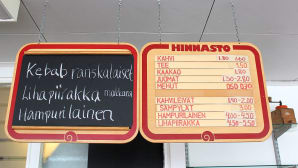 Kebab ranskalaiset
Lihapiirakka makkara
Hampurilainen
HINNASTO
KAHVI 1.80
TEE 1.50
KAAKAO 1.80
JUOMAT 1.50-2.80
MEHUT 0.50 0.70
KAHVILEIVÄT 1.90-2.00
SÄMPYLÄT 3.00
HAMPURILAINEN 4.00-4.50
LIHAPIIRAKKA 4.50-5.50